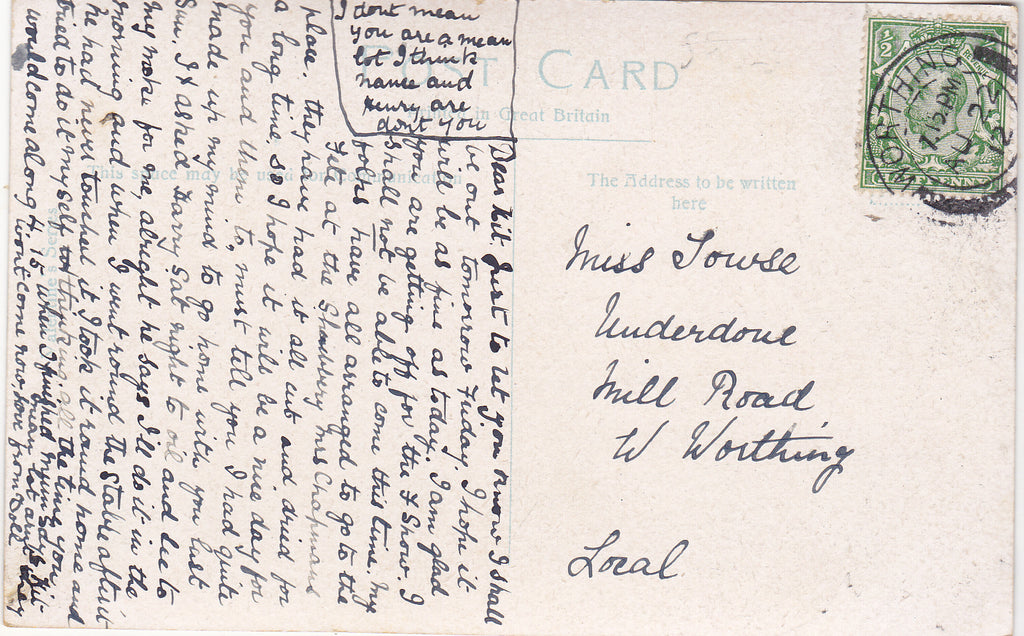 POST CARD
Printed in Great Britain
This space may be used for communication
The Address to be written
here
WORTHING
7.15 PM
JY 22
12
Miss Towse
Underdone
Mill Road
W Worthing
Local
Dear Kit. Just to let you know I shall
be out tomorrow Friday. I hope it
will be as fine as today. I am glad
you are getting off for the F Show. I
shall not be able to come this time. My
folks have all arranged to go to the
Fete at the Shrubbery Mrs Chapmans
place. they have had it all cub and dried for
a long time so I hope it will be a nice day for
you and them to, must tell you I had quite
made up my mind to go home with you last
Sun. I asked Harry Sat night to oil and see to
my moke for me, alright he says I'll do it in the
morning and when I went round the Stable after it
he had never touched it I took it round home and
tried to do it myself thinking all the time you
would come along H to When I finished
many lot aint they
I wont come now, love from Doll
I dont mean
you are a mean
lot I think
nance and
Henry are
dont you